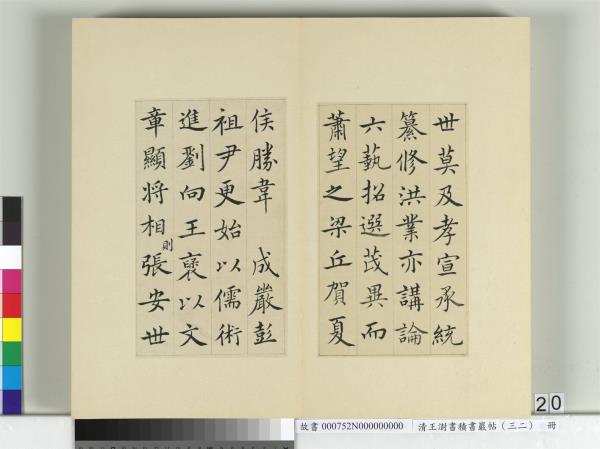 世莫及孝宣承統
纂修洪業亦講論
六藝招選茂異而
蕭望之梁丘賀夏
侯勝韋　成嚴彭
祖尹更始以儒術
進劉向王襃以文
章顯將相則張安世
20
故書 000752N000000000
清王澍書積書巖帖（三二） 冊